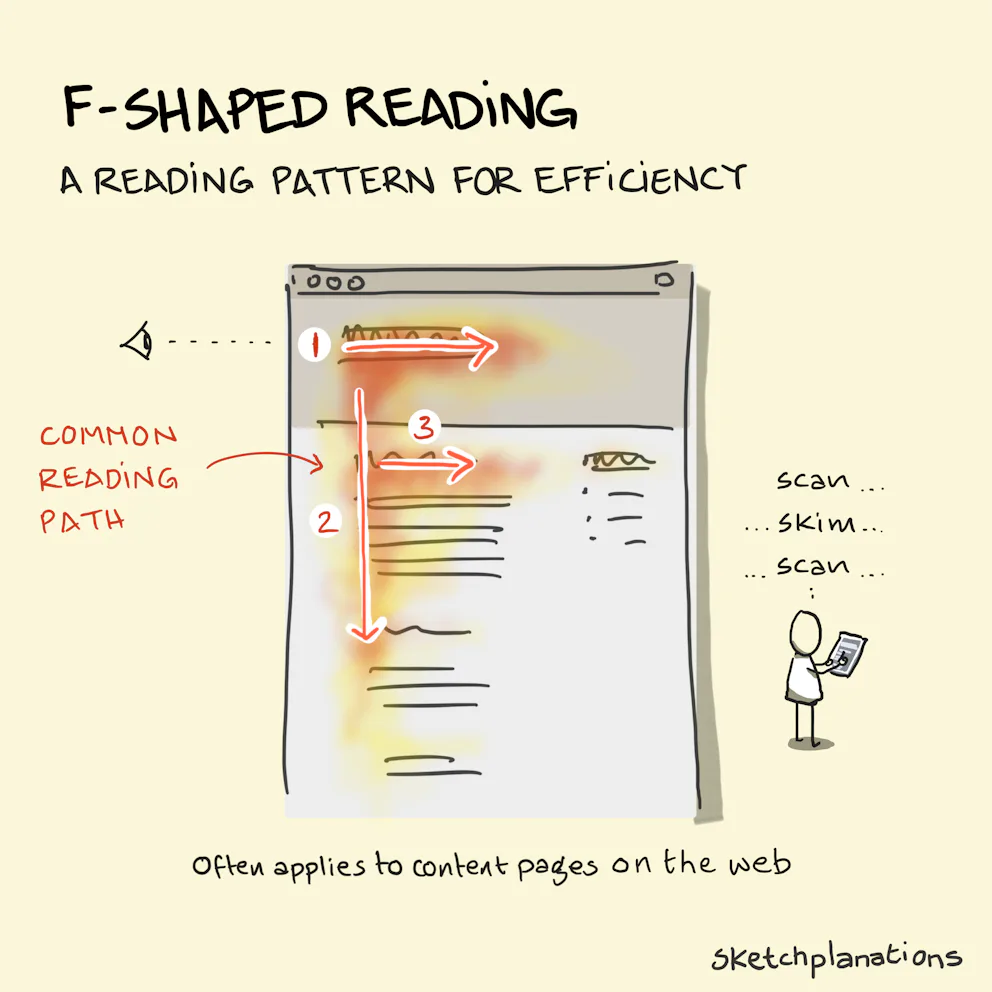 F-SHAPED READING
A READING PATTERN FOR EFFICIENCY
1
COMMON
READING
PATH
3
2
scan ...
... skim ...
... scan ...
Often applies to content pages on the web
sketchplanations